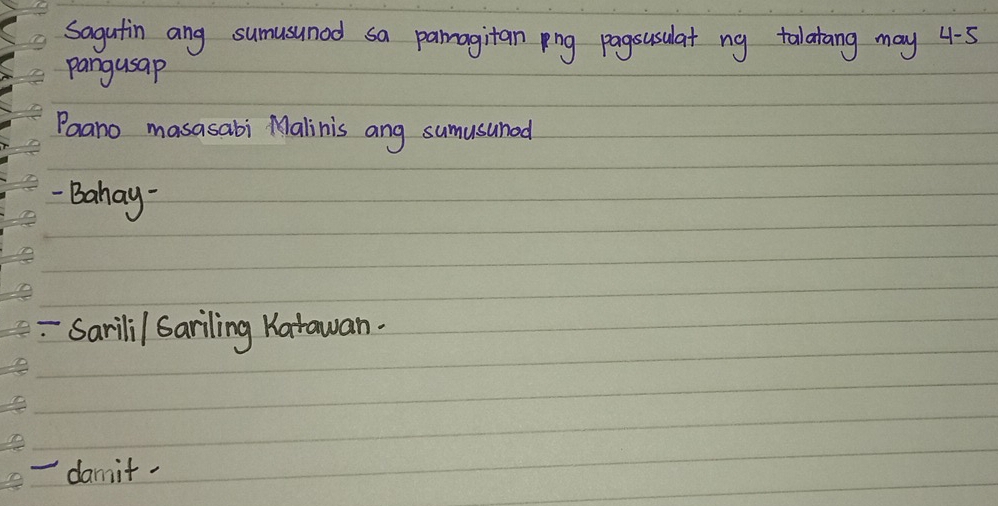 Sagutin ang sumusunod sa pamagitan ng pagsusulat ng talatang may 4-5
pangusap
Paano masasabi Malinis ang sumusunod
- Bahay -
- Sarili / Sariling Katawan -
- damit -